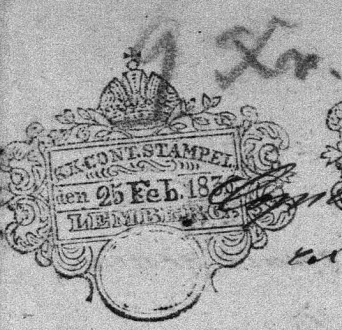 9 Xr.
K.K.CONT.STAMPEL.
den 25 Feb. 187
LEMBERG.